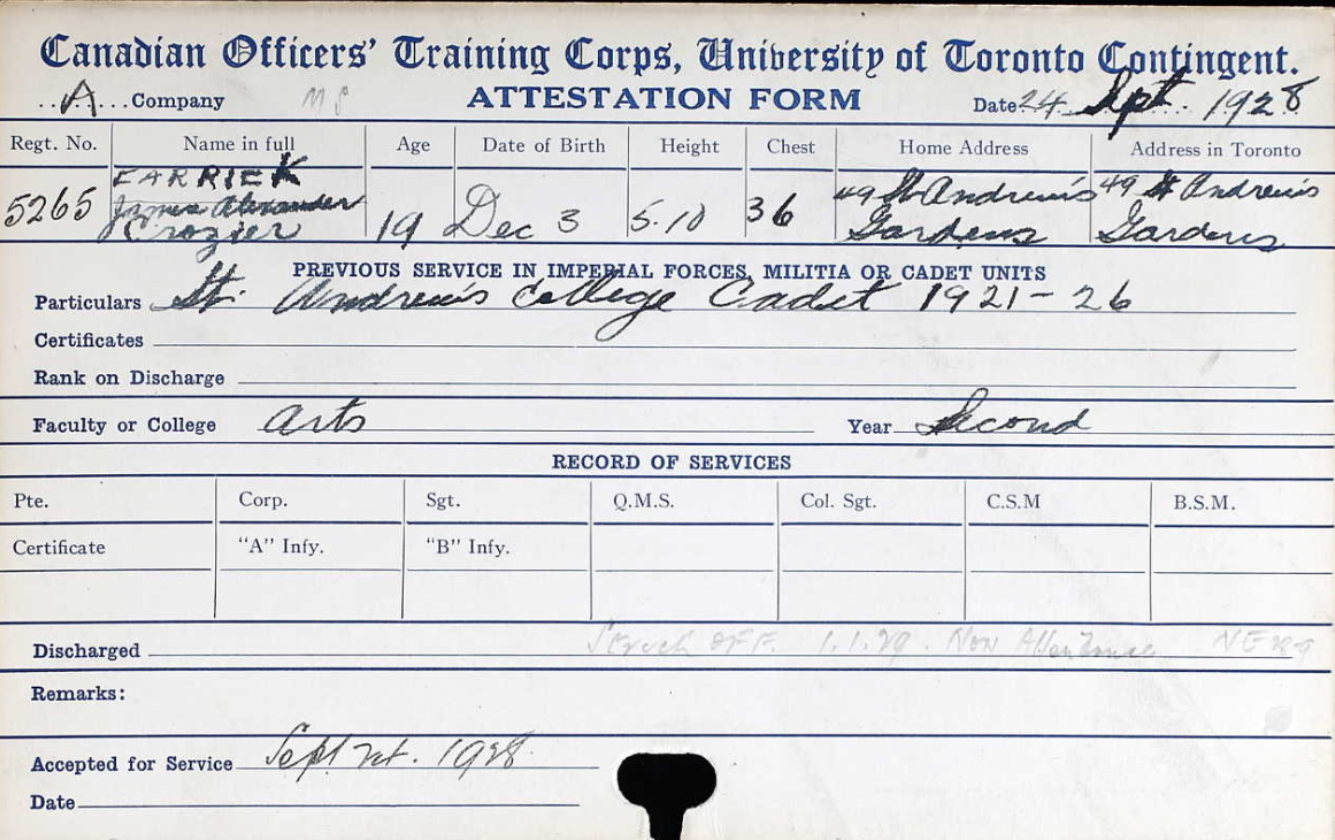 Canadian Officers' Training Corps, University of Toronto Contingent.
A Company ATTESTATION FORM Date 24 Sept 1928
Regt. No. Name in full Age Date of Birth Height Chest Home Address Address in Toronto
CARRICK
5265 James Alexander 19 Dec 3 5.10 36 49 St Andrew's 49 St Andrew's
Crozier Gardens Gardens
PREVIOUS SERVICE IN IMPERIAL FORCES, MILITIA OR CADET UNITS
Particulars St. Andrew's College Cadet 1921-26
Certificates
Rank on Discharge
Faculty or College Arts Year Second
RECORD OF SERVICES
Pte. Corp. Sgt. Q.M.S. Col. Sgt. C.S.M B.S.M.
Certificate "A" Infy. "B" Infy.
Discharged Struck OFF. 1.1.29. Non Attendance
Remarks:
Accepted for Service Sept 1928
Date